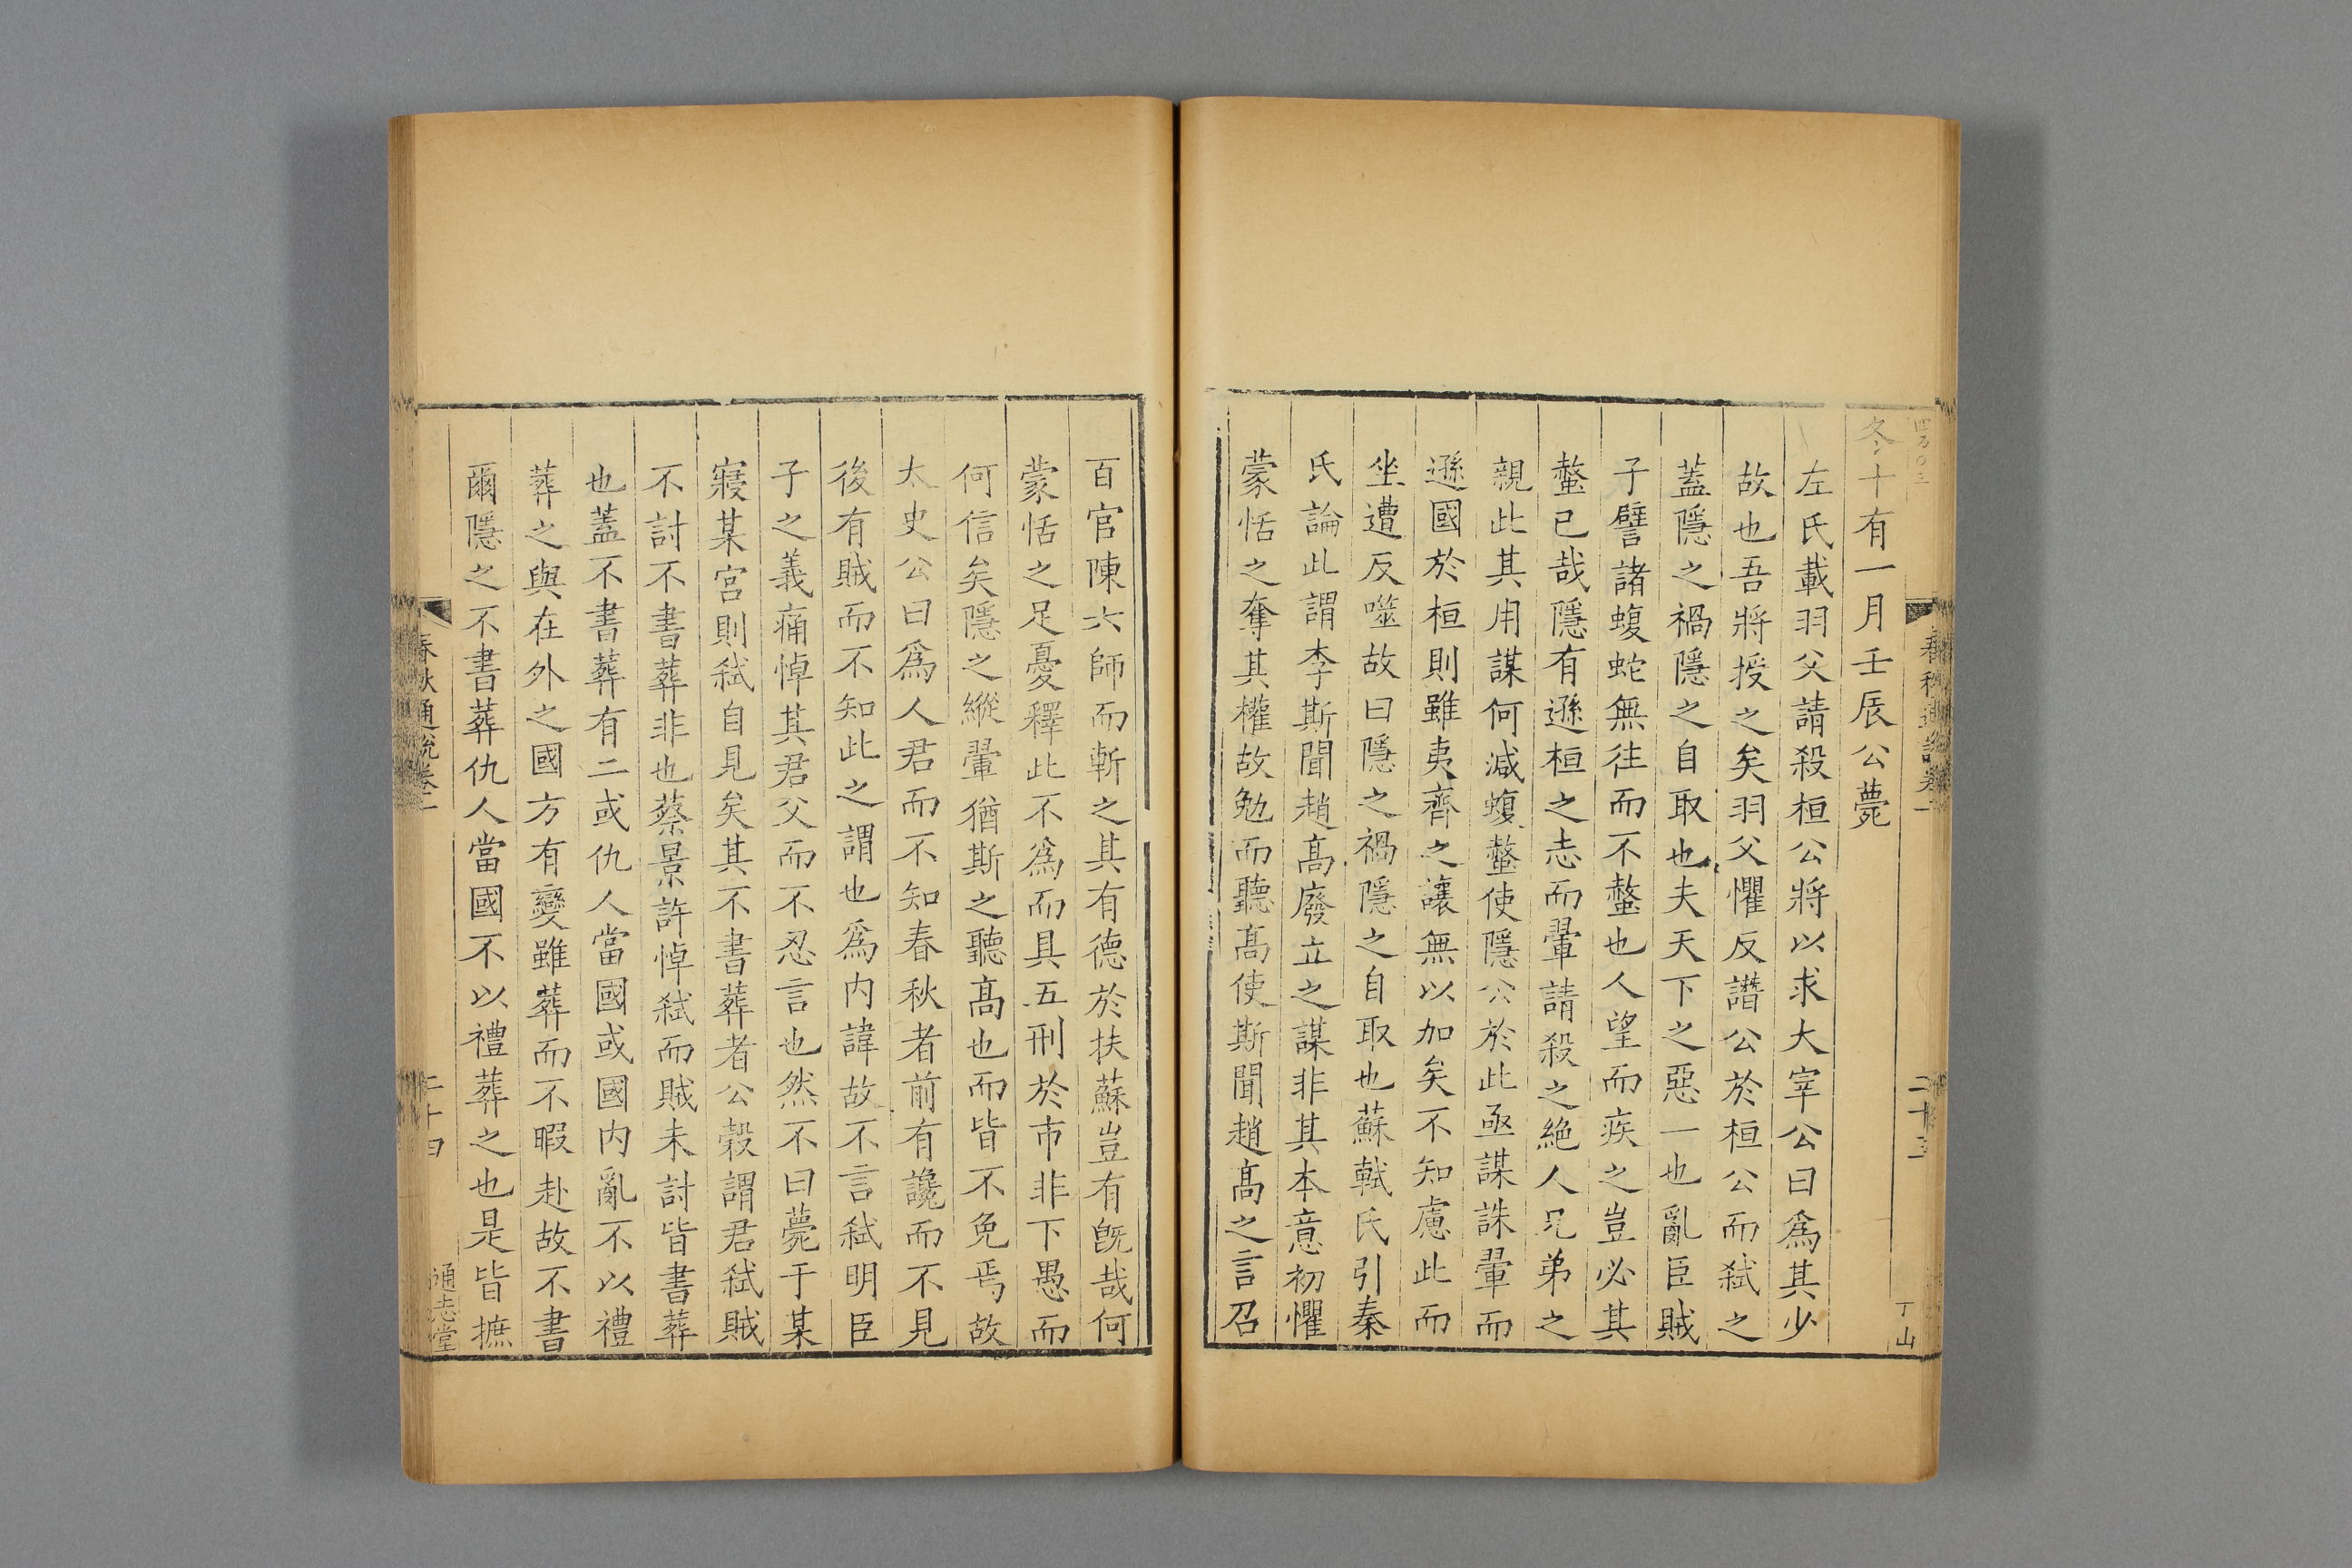 冬十有一月壬辰公薨
左氏載羽父請殺桓公將以求大宰公曰爲其少
故也吾將授之矣羽父懼反譖公於桓公而弑之
蓋隱之禍隱之自取也夫天下之惡一也亂臣賊
子譬諸蝮蛇無往而不螫也人望而疾之豈必其
螫已哉隱有遜桓之志而翬請殺之絶人兄弟之
親此其用謀何減蝮螫使隱公於此亟謀誅翬而
遜國於桓則雖夷齊之讓無以加矣不知慮此而
坐遭反噬故曰隱之禍隱之自取也蘇軾氏引秦
氏論此謂李斯聞趙高廢立之謀非其本意初懼
蒙恬之奪其權故勉而聽高使斯聞趙高之言召
春秋通說卷一
二十三
丁山
百官陳六師而斬之其有德於扶蘇豈有旣哉何
蒙恬之足憂釋此不爲而具五刑於市非下愚而
何信矣隱之縱翬猶斯之聽高也而皆不免焉故
太史公曰爲人君而不知春秋者前有讒而不見
後有賊而不知此之謂也爲内諱故不言弑明臣
子之義痛悼其君父而不忍言也然不曰薨于某
寢某宮則弑自見矣其不書葬者公榖謂君弑賊
不討不書葬非也蔡景許悼弑而賊未討皆書葬
也蓋不書葬有二或仇人當國或國内亂不以禮
葬之與在外之國方有變雖葬而不暇赴故不書
爾隱之不書葬仇人當國不以禮葬之也是皆摭
春秋通說卷一
二十四
通志堂